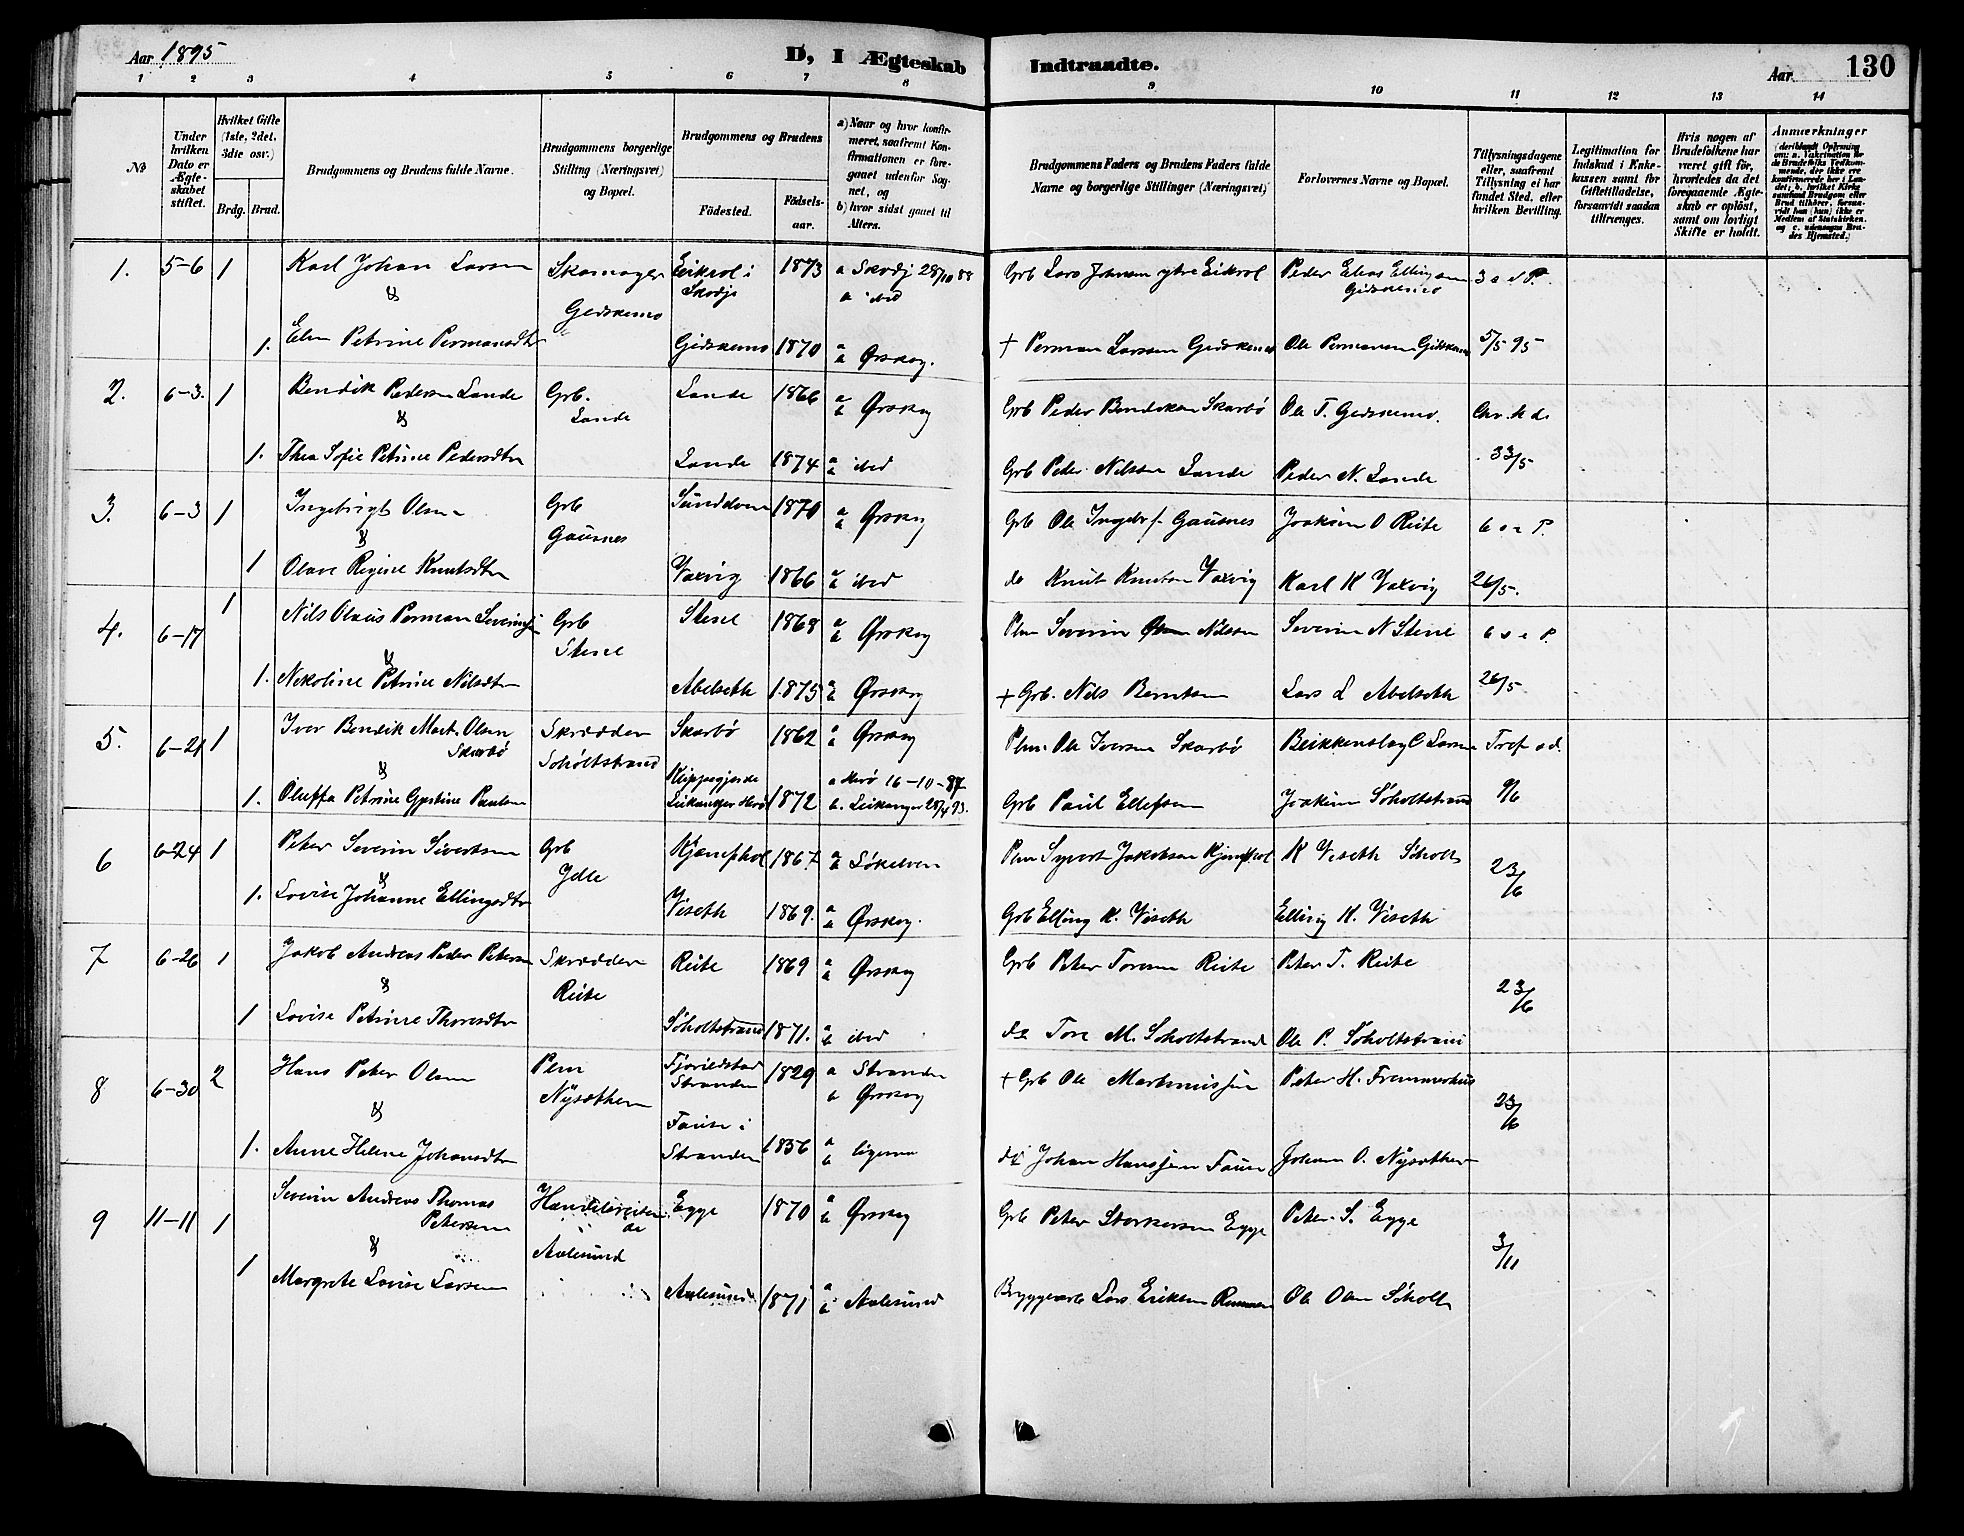 Aar 1895
D, I Ægteskab
Indtraadte.
Aar
130
1 2 3 4 5 6 7 8 9 10 11 12 13 14
No
Under hvilken Dato er Ægteskabet stiftet.
Hvilket Gifte (1ste, 2det, 3die osv.)
Brdg. Brud.
Brudgommens og Brudens fulde Navne.
Brudgommens borgerlige Stilling (Næringsvei) og Bopæl.
Brudgommens og Brudens
Födested.
Födselsaar.
a) Naar og hvor konfirmeret, saafremt Konfirmationen er foregaaet udenfor Sognet, og
b) hvor sidst gaaet til Alters.
Brudgommens Faders og Brudens Faders fulde Navne og borgerlige Stillinger (Næringsvei)
Forlovernes Navne og Bopæl.
Tillysningsdagene eller, saafremt Tillysning ei har fundet Sted, efter hvilken Bevilling.
Legitimation for Indskud i Enkekassen samt for Giftetilladelse, forsaavidt saadan tiltrænges.
Hvis nogen af Brudefolkene har været gift för, hvorledes da det foregaaende Ægteskab er oplöst, samt om lovligt Skifte er holdt.
Anmærkninger
1. 5-6 1 Karl Johan Larsen Skomager Eikrol i Skodje 1873 a Skodj 28/10 88 b ibid Grb Lars Johnsen ytre Eikrol Peder Elias Ellingsen Gidskemo 3 s e P.
&
Gidskemo
1. Elen Petrine Permansdtr Gidskemo 1870 a b Ørskog. + Perman Larssen Gidskemo Ole Permansen Gidskemo 5/5 95
2. 6-3. 1 Bendik Pedersen Lande Grb. Lande Lande 1866 a b Ørskog Grb Peder Bendiksen Skarbö Ole T. Gidskemo. Chr. h d.
&
1. Thea Sofie Petrine Pedersdtr Lande 1874 a b ibid Grb Peder Nilssen Lande Peder N. Lande 23/5
3. 6-3 1 Ingebrigt Olsen Grb Gausnes 1870 a b Ørskog Grb Ole Ingebr. Gausnes Joakim O Reite 6 s e P.
&
1 Olave Regine Knutsdtr Vaxvig 1866 a b ibid do Knut Knutsen Vaxvig Karl K Vaxvig 26/5.
4. 6-17 1 Nils Olaus Perman Severinsen Grb Stene Stene 1868 a b Ørskog Plm Severin Nilssen Severin N Stene 6 s e P.
&
1. Nikoline Petrine Nilsdtr Abelseth 1875 a b Ørskog + Grb. Nils Berntsen Lars L Abelseth 26/5
5. 6-21 1 Iver Bendik Mart. Olsen Skarbö Skrædder Söholtstrand Skarbö 1862 a b Ørskog Plm. Ole Iversen Skarbö Larsen Tref s d.
&
1. Oluffa Petrine Paulsen Leikanger Herö 1872 a Herö 16-10-87 b. Leikanger 28/4 95. Grb Paul Ellefsen Joakim Söholtstrand 9/6
6 6-24 1 Peter Severin Sivertsen Grb Ydle 1867. a b Søkelven Plm Syvert Jakobsen K Viseth Söholt 23/6
&
1. Lovise Johanne Ellingsdtr Viseth 1869. a b Ørskog. Grb Elling K. Viseth Elling K. Viseth
7 6-26 1 Jakob Andreas Peder Petersen Skrædder Reite Reite 1869 a b Ørskog Grb Peter Toresen Reite Peter T. Reite 23/6
&
1 Lovise Petrine Thoresdtr Söholtstrand 1871. a b ibid do Tore M. Söholtstrand Ole P. Söholtstrand
8 6-30 2 Hans Peter Olsen Plm Nysæther Stranden 1829 a Stranden b Ørskog + Grb Ole Martinussen Peter H. Fremmerhus 23/6
&
1. Anne Helene Johansdtr Fause i Stranden 1836 a b ligesaa do Johan Hanssen Fause Johan O. Nysæther
9 11-11 1 Severin Andreas Thomas Petersen Handelsreisende Aalesund Egge 1870 a b Ørskog Grb Peter Storkersen Egge Peter S. Egge 3/11
&
1 Margrete Lovise Larsen Aalesund 1871 a b Aalesund Bryggearb Lars Eriksen Ole Olsen Söholt